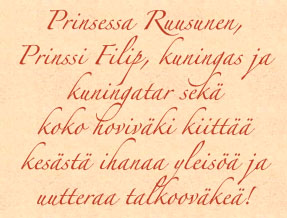 Prinsessa Ruusunen,
Prinssi Filip, kuningas ja
kuningatar sekä
koko hoviväki kiittää
kesästä ihanaa yleisöä ja
uutteraa talkooväkeä!